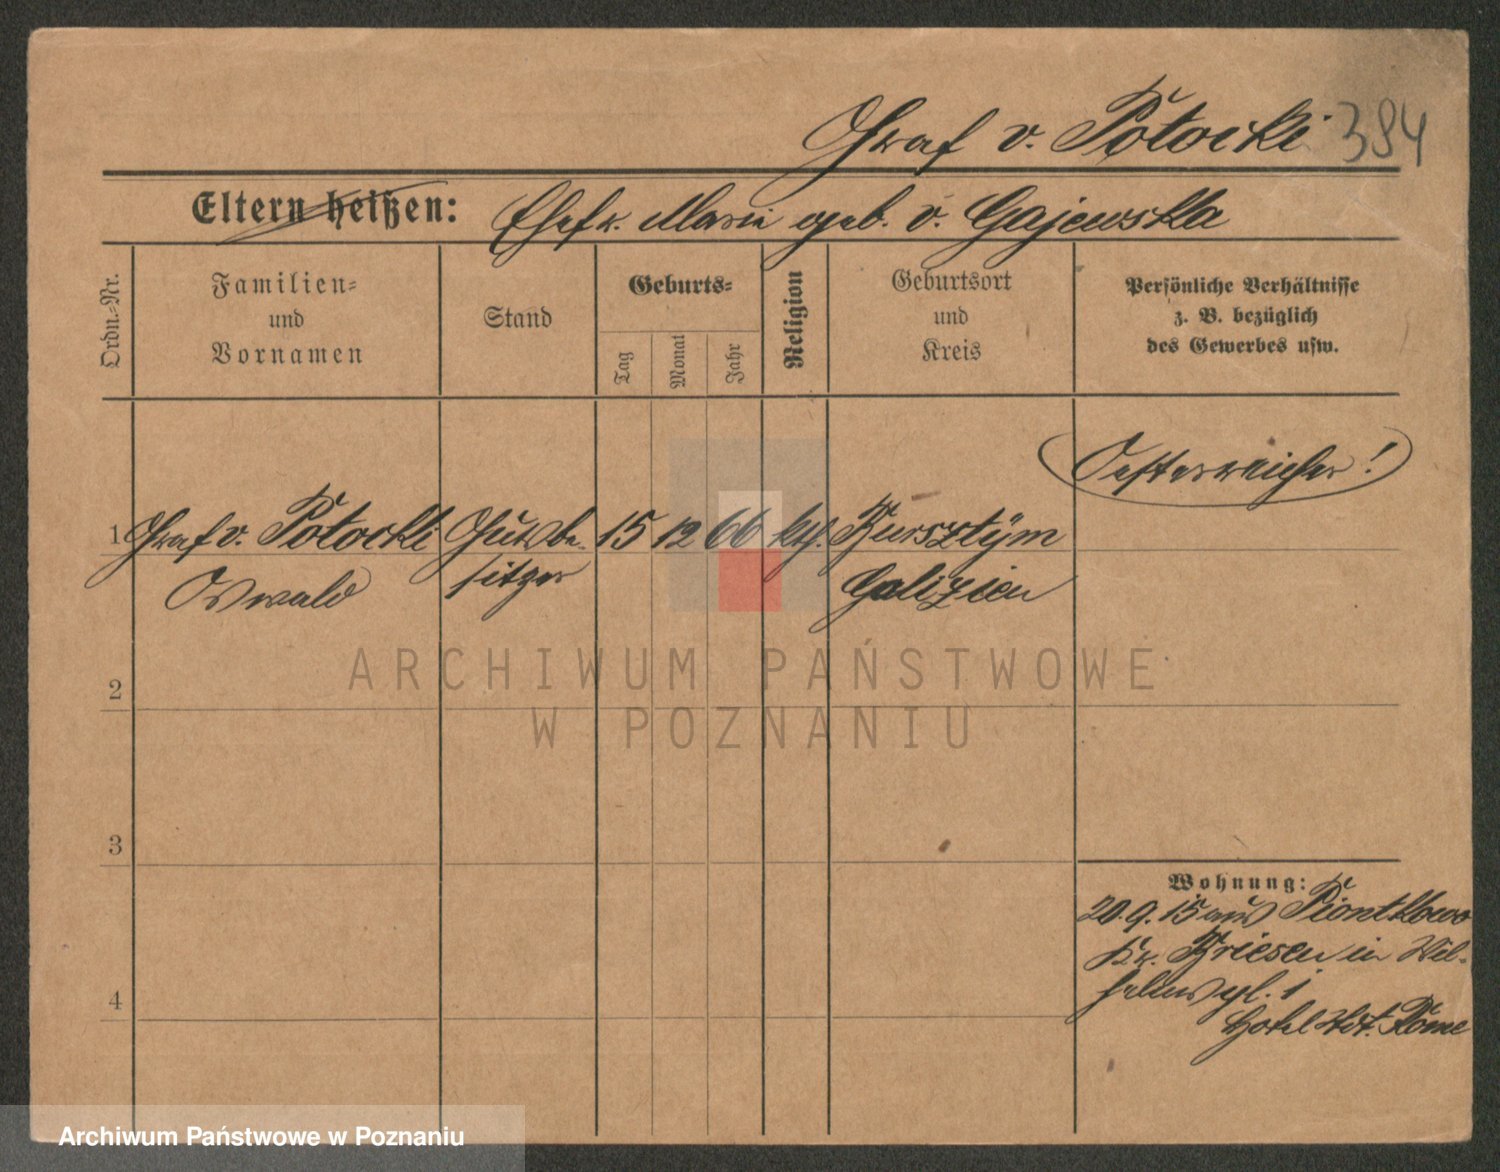 Graf v. Potocki 384
Eltern heißen: Ehefr. Marie geb. v. Gajewska
Ordn.-Nr.
Familien-
und
Vornamen
Stand
Geburts-
Tag
Monat
Jahr
Religion
Geburtsort
und
Kreis
Persönliche Verhältnisse
z. B. bezüglich
des Gewerbes usw.
Oesterreicher!
1 Graf v. Potocki Gutsbe- 15 12 66 kth. Bursztÿm
Oswald sitzer Galizien
ARCHIWUM PAŃSTWOWE
W POZNANIU
2
3
Wohnung:
20.9.15 aus Piontkowo
Kr. Briesen in Wil-
helmspl. 1
Hotel de Rome
4
Archiwum Państwowe w Poznaniu